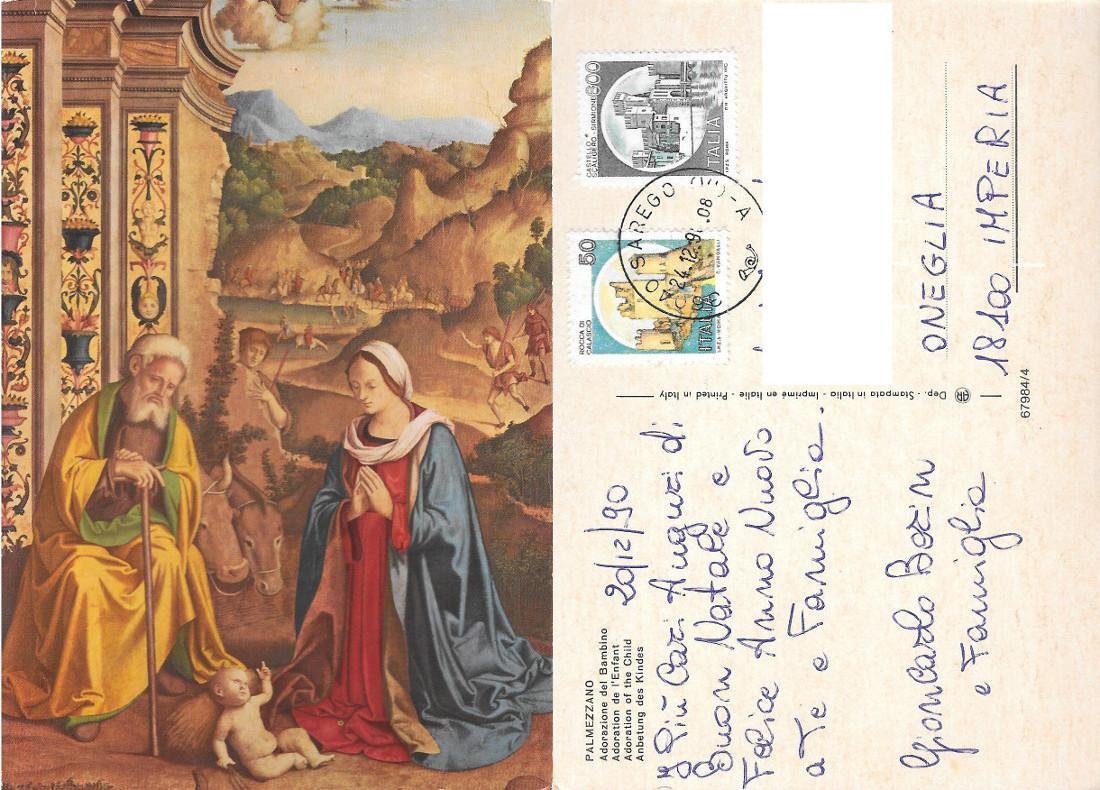 PALMEZZANO
Adorazione del Bambino
Adoration de l'Enfant
Adoration of the Child
Anbetung des Kindes
20/12/90
I Più Cari Auguri di
Buon Natale e
Felice Anno Nuovo
a Te e Famiglia.
Giancarlo
e Famiglia
Dep. - Stampata in Italia - Imprimé en Italie - Printed in Italy
67984/4
800
CASTELLO
SCALIGERO - SIRMIONE
ITALIA
50
ROCCA DI
CALASCIO
ITALIA
SAREGO
24.12.9
08
ONEGLIA
18100 IMPERIA